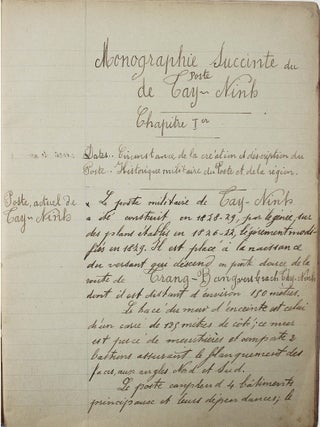 Monographie Succinte du
Poste
de Tay-Ninh
Chapitre Ier
Dates. Circonstance de la création et description du
Poste. Historique militaire du Poste et de la région.
Poste actuel de
Tay-Ninh
Le poste militaire de Tay-Ninh
a été construit, en 1928-29, par le génie, sur
des plans établis en légèrement modi-
fiés en 1929. Il est placé à la naissance
du versant que descend en pente douce la
route de Trang-Bang vers Tay-Ninh
dont il est distant d'environ 150 mètres.
Le tracé du mur d'enceinte est celui
d'un carré de 125 mètres de côté; ce mur
est percé de meurtrières et comporte 2
bastions assurant le flanquement des
faces, aux angles Nord et Sud.
Le poste comprend 4 bâtiments
principaux et leurs dépendances; le